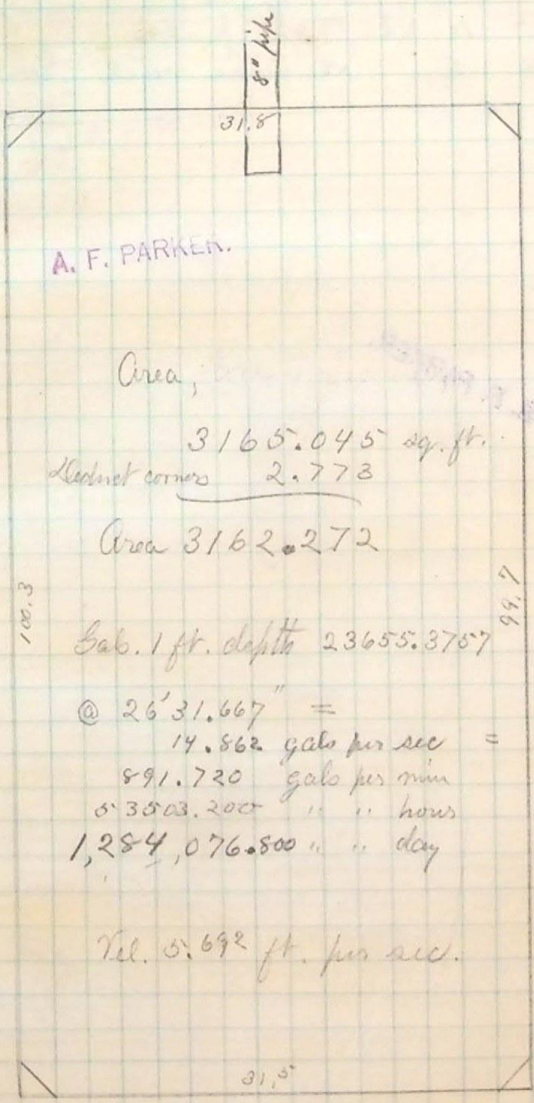 8" pipe
31.8
A. F. PARKER.
Area,
3165.045 sq. ft.
Deduct corners 2.773
Area 3162.272
100.3
99.7
Gals. 1 ft. depth 23655.3757
@ 26'31.667" =
14.862 gals per sec =
891.720 gals per min
53503.200 " " hours
1,284,076.800 " " day
Vel. 5.692 ft. per sec.
31.5